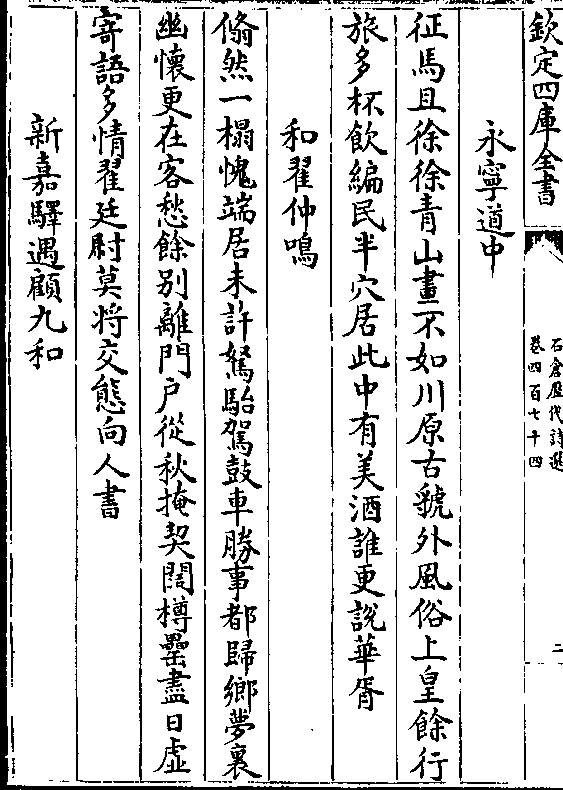 欽定四庫全書
石倉歷代詩選
卷四百七十四
二
永寧道中
征馬且徐徐青山畫不如川原古虢外風俗上皇餘行
旅多杯飲編民半穴居此中有美酒誰更說華胥
和翟仲鳴
翛然一榻愧端居未許駑駘駕鼓車勝事都歸鄉夢裏
幽懷更在客愁餘別離門户從秋掩契闊樽罍盡日虛
寄語多情翟廷尉莫將交態向人書
新嘉驛遇顧九和